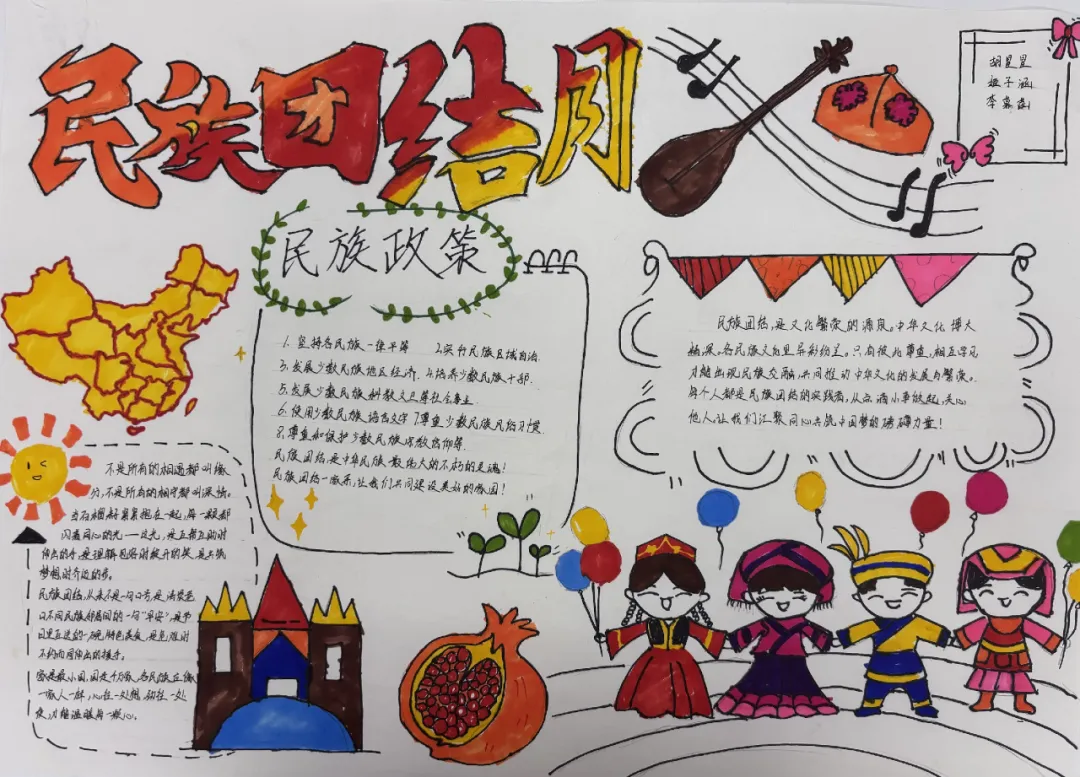 民族团结月
胡星星
子涵
李嘉
民族政策
1. 坚持各民族一律平等 2. 实行民族区域自治
3. 发展少数民族地区经济 4. 培养少数民族干部.
5. 发展少数民族科教文卫等社会事业
6. 使用少数民族语言文字 7 尊重少数民族风俗习惯
8. 尊重和保护少数民族宗教信仰等.
民族团结是中华民族最伟大的不朽的灵魂!
民族团结一家亲,让我们共同建设美好的家园!
民族团结,是文化繁荣的源泉。中华文化博大
精深,各民族文化异彩纷呈。只有彼此尊重,相互学习
才能出现民族交融,共同推动中华文化的发展与繁荣。
每个人都是民族团结的实践者,从点滴小事做起,关心
他人,让我们汇聚同心共筑中国梦的磅礴力量!
不是所有的相遇都叫缘
分,不是所有的相守都叫深情。
当石榴籽紧紧抱在一起,每一颗都
闪着同心的光——这光,是互帮互助时
伸出的手,是理解包容时绽开的笑,是共筑
梦想时齐迈的步。
民族团结,从来不是一句口号,是清晨里
不同民族邻居间的一句“早安”,是节
日里互送的一碗特色美食,是危难时
不约而同伸出的援手。
家是最小国,国是千万家,各民族正像
一家人一样,心往一处想,劲往一处
使,才能温暖每一颗心。